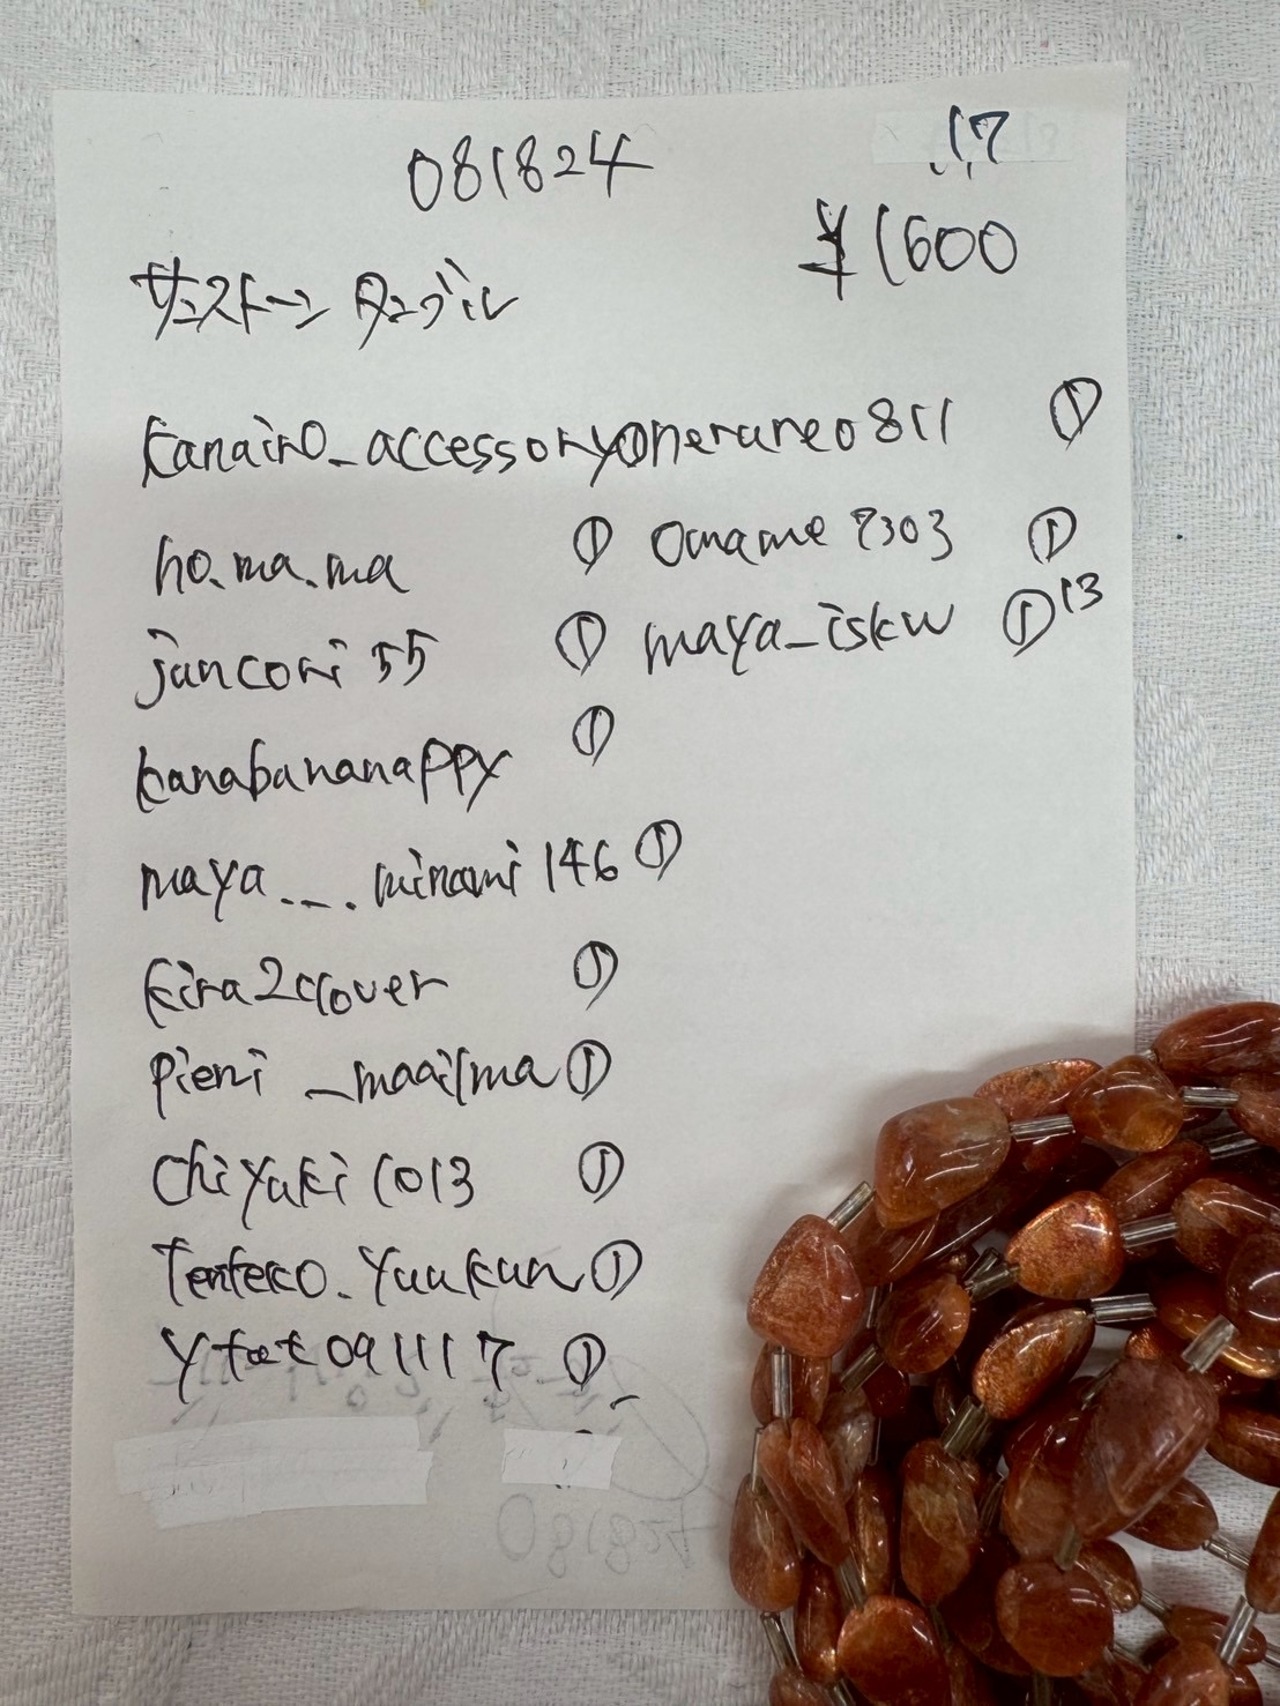 081824
17
¥1600
サンストーン タンブル
kanairo_accessory ① oneruneo811 ①
ho.ma.ma ① oname7303 ①
juncori55 ① maya_iskw ① 13
kanabananappy ①
maya_._. minami146 ①
kira2clover ①
pieni _maailma ①
chiyuki1013 ①
Tenteko.yuukun ①
ytat091117 ①